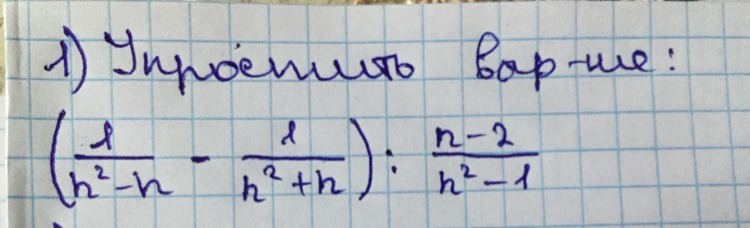 1) Упростить выр-ие:
(1/(n²-n) - 1/(n²+n)) : (n-2)/(n²-1)